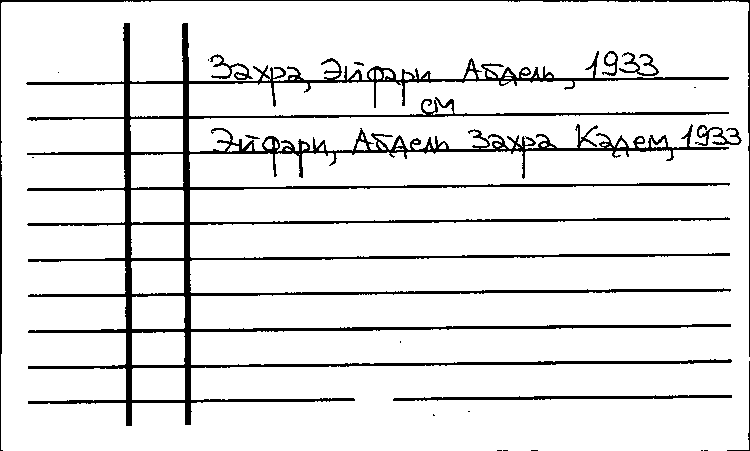 Захра, Эйфари Абдель, 1933
см
Эйфари, Абдель Захра Кадем, 1933